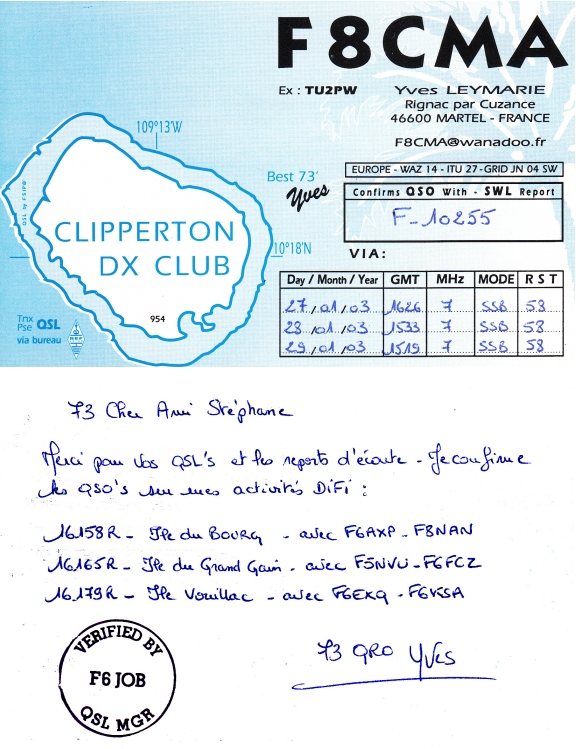 F8CMA
Ex : TU2PW
Yves LEYMARIE
Rignac par Cuzance
46600 MARTEL - FRANCE
F8CMA@wanadoo.fr
109°13'W
Best 73'
Yves
EUROPE - WAZ 14 - ITU 27 - GRID JN 04 SW
Confirms QSO With - SWL Report
F-10255
QSL by F5IPW
CLIPPERTON
DX CLUB
10°18'N
VIA:
954
Tnx
Pse QSL
via bureau
Day / Month / Year GMT MHz MODE R S T
27/01/03 1626 7 SSB 58
28/01/03 1533 7 SSB 58
29/01/03 1519 7 SSB 58
73 Cher Ami Stéphane
Merci pour vos QSL's et les reports d'écoute - Je confirme
les QSO's sur mes activités DiFi :
16158R - Ile du BOURG - avec F6AXP - F8NAN
16165R - Ile du Grand Gain - avec F5NVU - F6FCZ
16179R - Ile Vouillac - avec F6EXQ - F6VSA
73 QRO YVES
VERIFIED BY
F6 JOB
QSL MGR